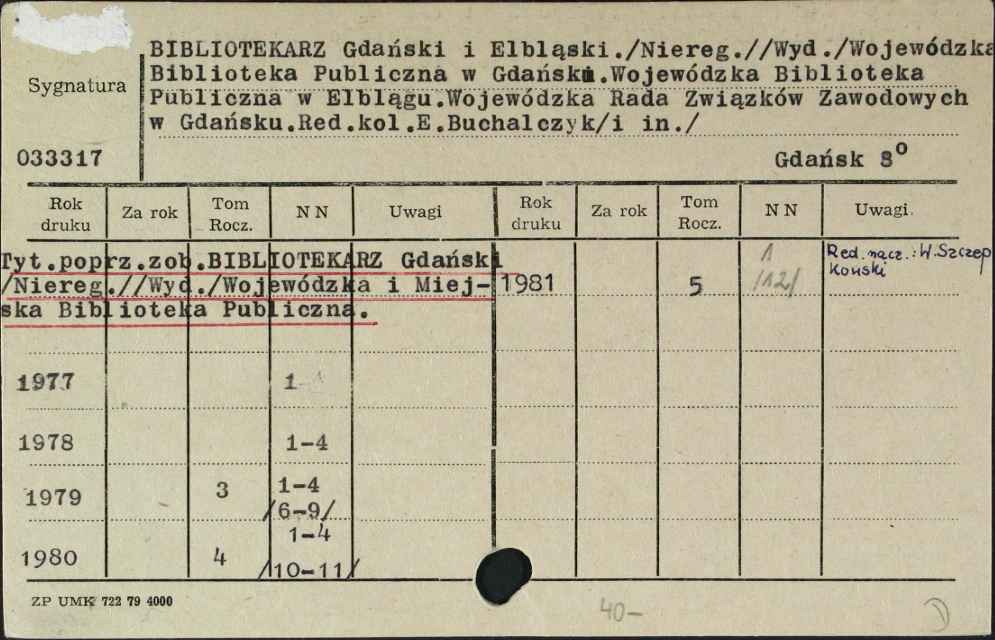 BIBLIOTEKARZ Gdański i Elbląski./Niereg.//Wyd./Wojewódzka
Sygnatura
Biblioteka Publiczna w Gdańsku.Wojewódzka Biblioteka
Publiczna w Elblągu.Wojewódzka Rada Związków Zawodowych
w Gdańsku.Red.kol.E.Buchalczyk/i in./
033317
Gdańsk 8°
Rok druku Za rok Tom Rocz. NN Uwagi Rok druku Za rok Tom Rocz. NN Uwagi
Tyt.poprz.zob.BIBLIOTEKARZ Gdański
/Niereg.//Wyd./Wojewódzka i Miej-
ska Biblioteka Publiczna.
1981 5 1 /12/ Red. nacz.: W. Szczep
koński
1977 1
1978 1-4
1979 3 1-4
/6-9/
1980 4 1-4
/10-11/
ZP UMK 722 79 4000
40-